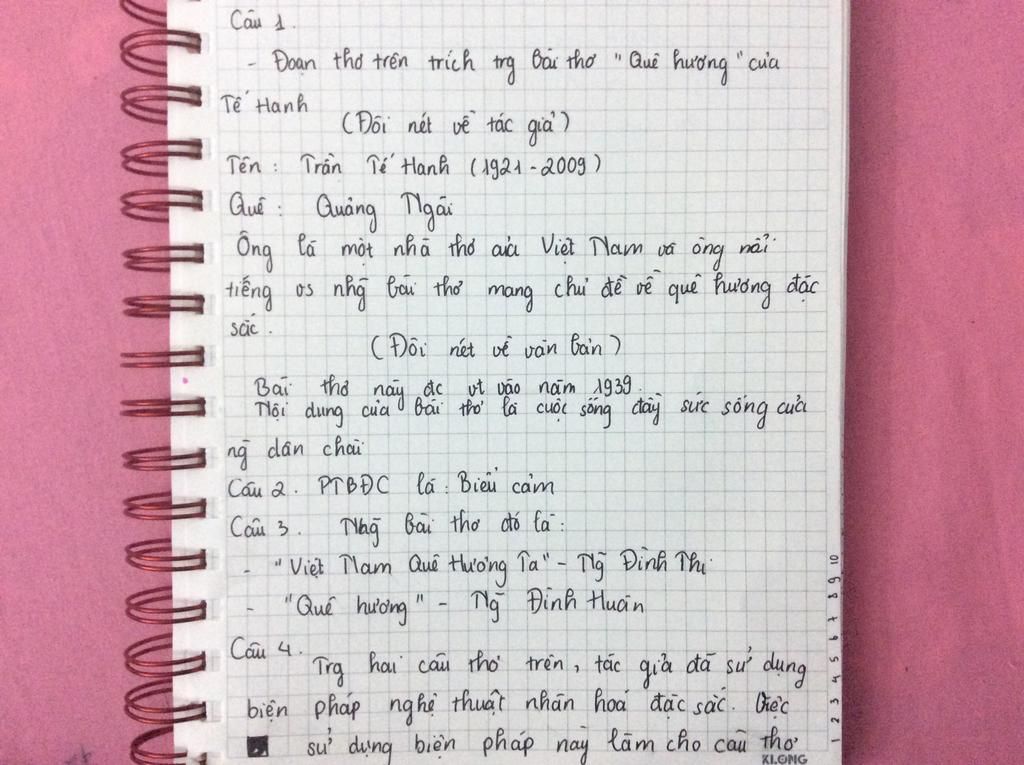 Câu 1.
- Đoạn thơ trên trích trg bài thơ "Quê hương" của
Tế Hanh
(Đôi nét về tác giả)
Tên : Trần Tế Hanh (1921-2009)
Quê : Quảng Ngãi
Ông là một nhà thơ của Việt Nam và ông nổi
tiếng vs nhg̃ bài thơ mang chủ đề về quê hương đặc
sắc.
(Đôi nét về văn bản)
Bài thơ này đc vt vào năm 1939.
Nội dung của bài thơ là cuộc sống đầy sức sống của
ng̀ dân chài
Câu 2. PTBĐC là : Biểu cảm
Câu 3. Nhg̃ bài thơ đó là :
- "Việt Nam Quê Hương Ta" - Ng̃ Đình Thi
- "Quê hương" - Ng̃ Đình Huân
Câu 4.
Trg hai câu thơ trên, tác giả đã sử dụng
biện pháp nghệ thuật nhân hoá đặc sắc. Việc
sử dụng biện pháp này làm cho câu thơ
KLONG
1 2 3 4 5 6 7 8 9 10